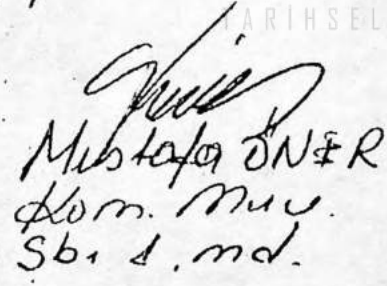 TARİHSEL
Mustafa ÖNER
Kom. Muv.